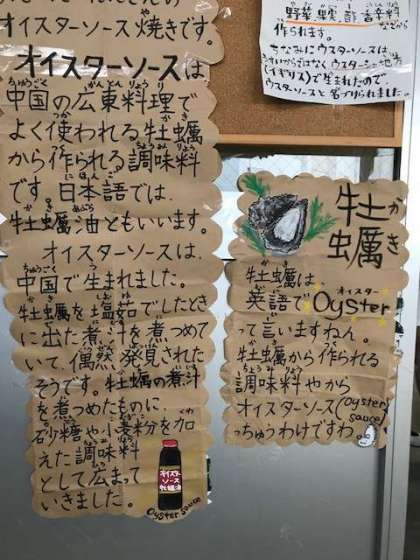 オイスターソース焼きです。
オイスターソースは
中国の広東料理で
よく使われる牡蠣
から作られる調味料
です。日本語では、
牡蠣油ともいいます。
オイスターソースは、
中国で生まれました。
牡蠣を塩茹でしたとき
に出た煮汁を煮つめて
いて、偶然発見された
そうです。牡蠣の煮汁
を煮つめたものに、
砂糖や小麦粉を加
えた調味料
として広まって
いきました。
オイスター
ソース
牡蠣油
Oyster sauce
野菜、果実、酢、香辛料
などから
作られます。
ちなみにウスターソースは、
うすいからではなくウスターシャー地方
(イギリス)で生まれたので、
ウスターソースと名づけられました。
牡蠣
かき
牡蠣は、
英語でOyster
オイスター
って言いますねん。
牡蠣から作られる
調味料やから
オイスターソース(oyster
sauce)
っちゅうわけですわ。